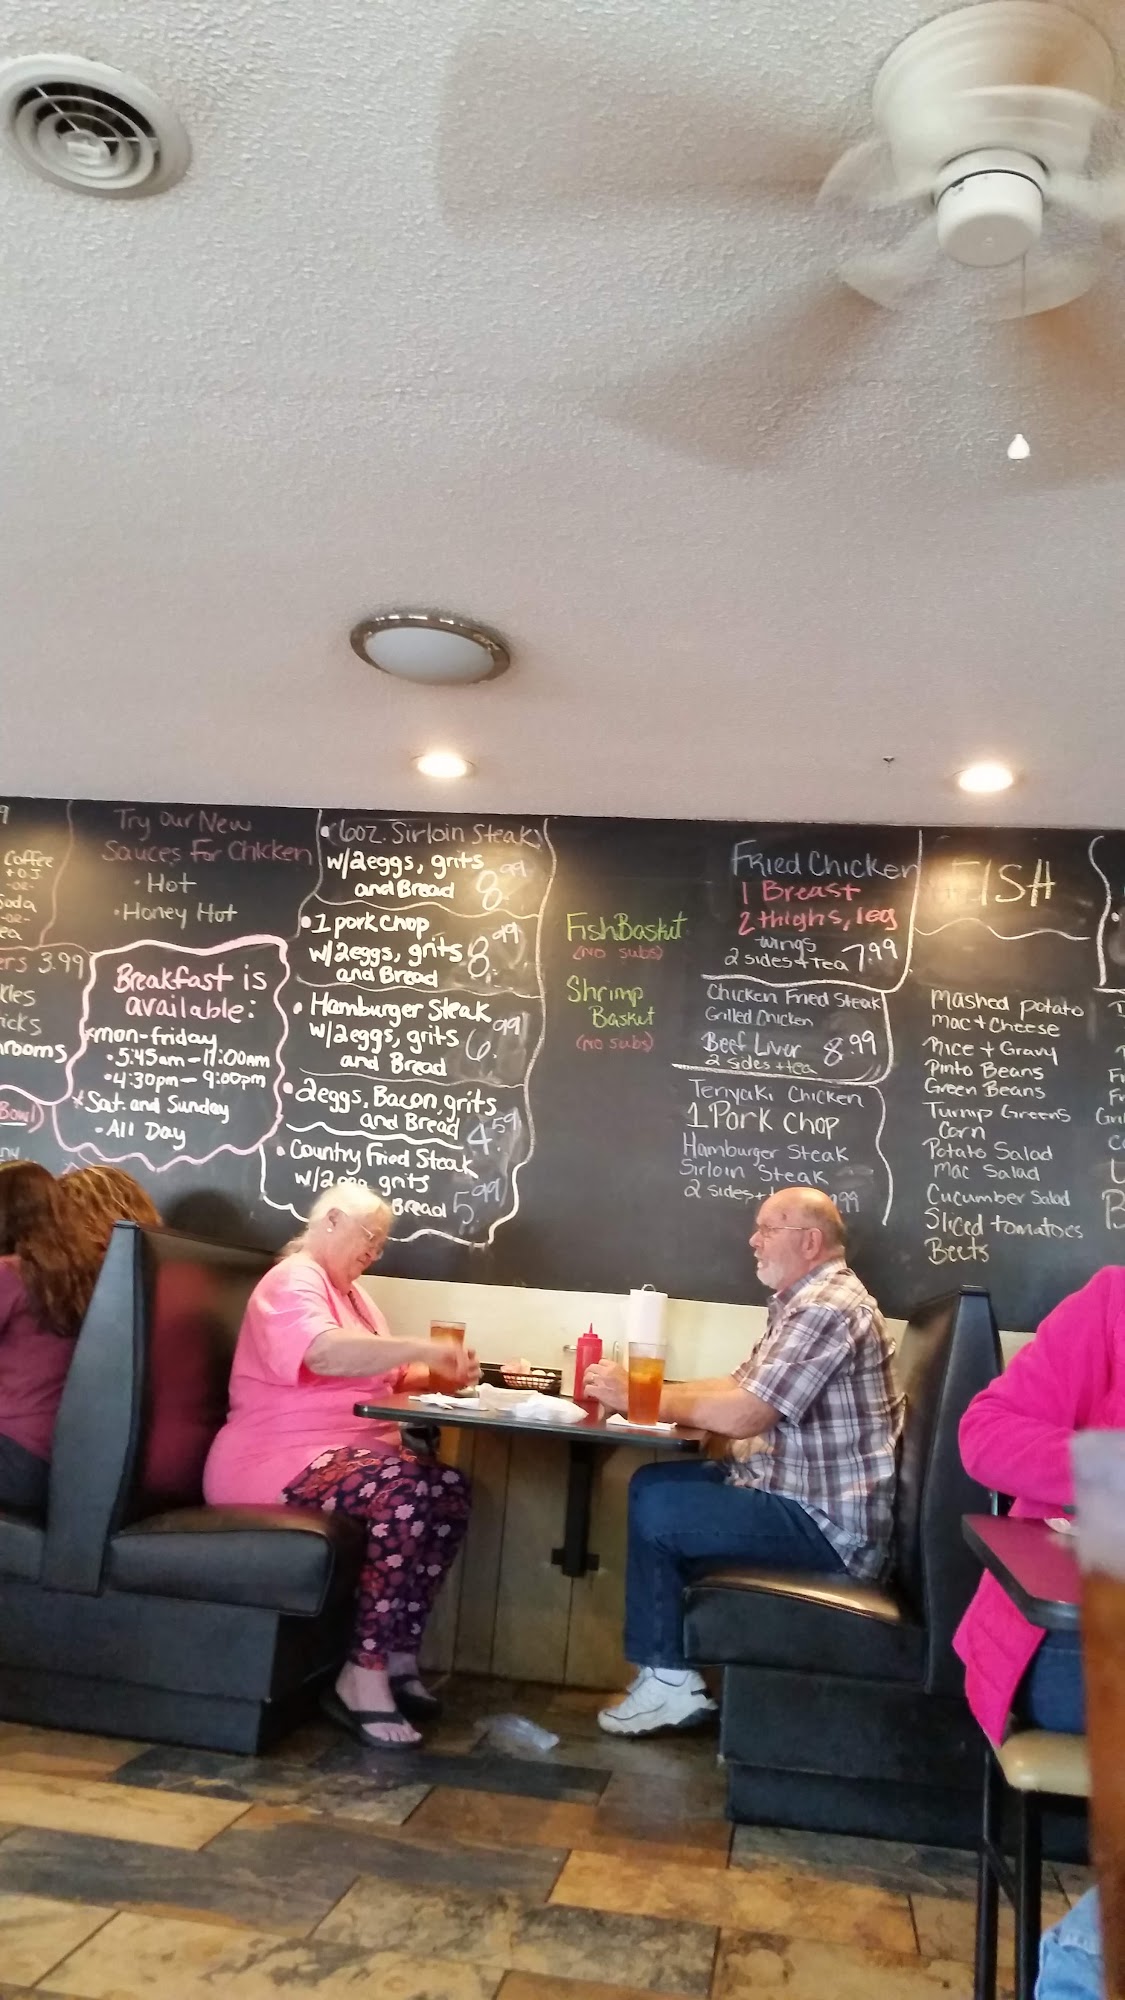 Coffee
+ OJ
-OR-
Soda
-OR-
3.99
Bowl)
Try Our New
Sauces For Chicken
• Hot
• Honey Hot
Breakfast is
available:
*mon-friday
• 5:45am-11:00am
• 4:30pm-9:00pm
*Sat. and Sunday
• All Day
• 6oz. Sirloin Steak
w/2eggs, grits
and Bread 8.99
• 1 pork chop
w/2eggs, grits
and Bread 8.99
• Hamburger Steak
w/2eggs, grits
and Bread 6.99
• 2eggs, Bacon, grits
and Bread 4.59
• Country Fried Steak
w/2egg grits
Bread 5.99
Fish Basket
(no subs)
Shrimp
Basket
(no subs)
Fried Chicken
1 Breast
2 thighs, leg
wings
2 sides + Tea 7.99
Chicken Fried Steak
Grilled Chicken
Beef Liver 8.99
2 sides + tea
Teriyaki Chicken
1 Pork Chop
Hamburger Steak
Sirloin Steak
2 sides+
FISH
mashed potato
mac + cheese
Rice + Gravy
Pinto Beans
Green Beans
Turnip Greens
Corn
Potato Salad
mac Salad
Cucumber Salad
Sliced tomatoes
Beets